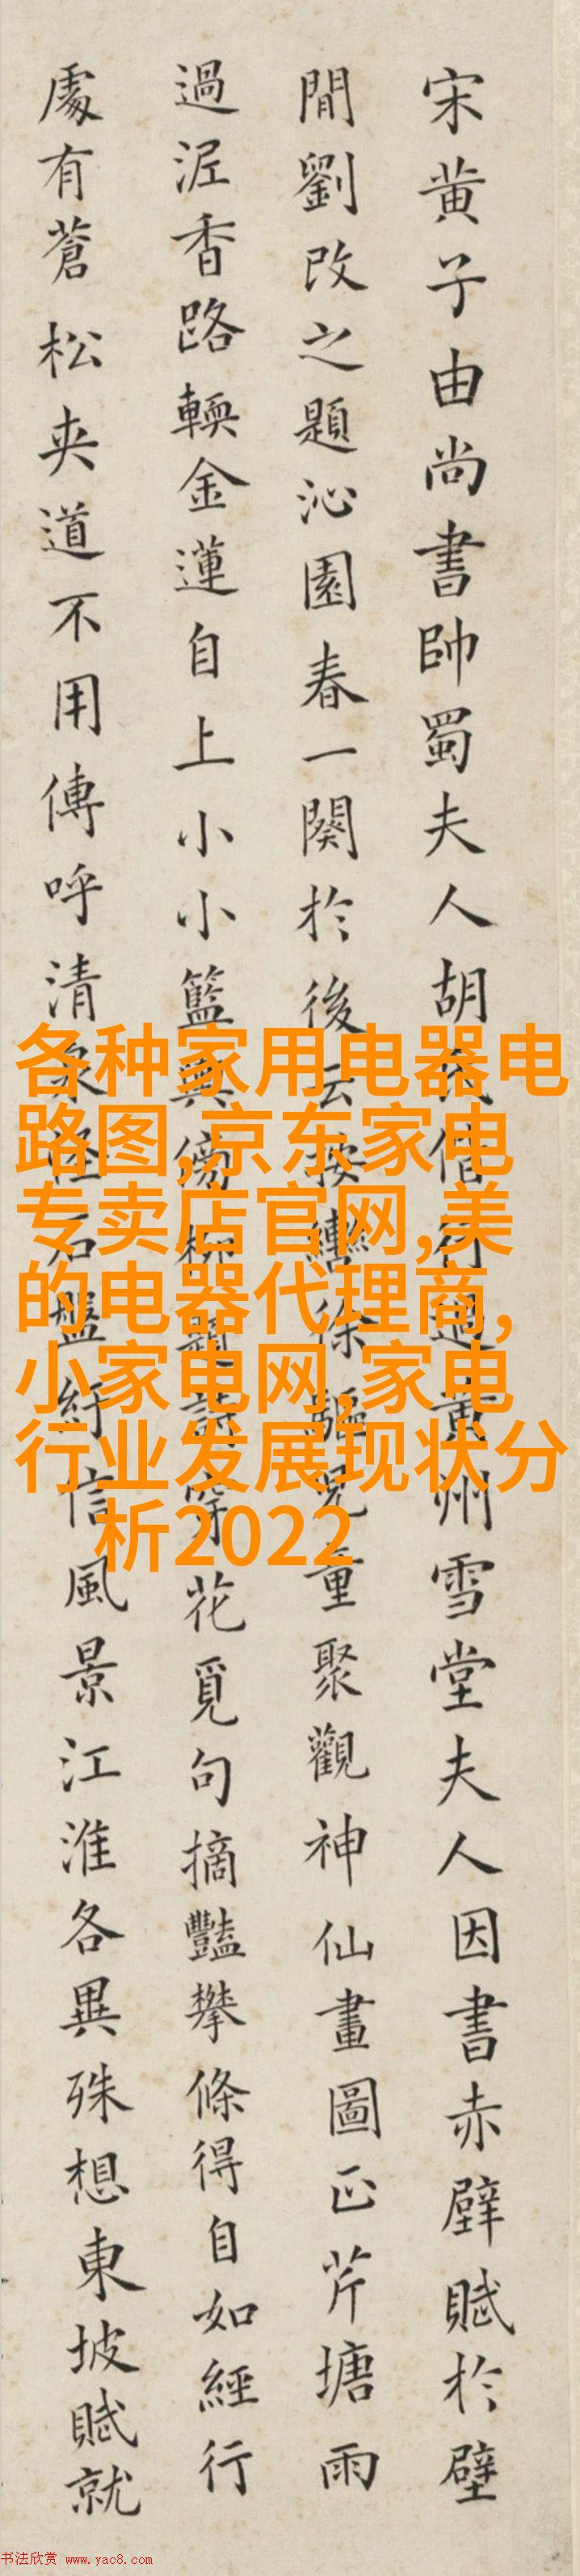 宋黄子由尚書帥蜀夫人胡氏偕行過黄州雪堂夫人因書赤壁賦於壁
閒劉改之題沁園春一闋於後云按轡徐驅兒童聚觀神仙畫圖正芹塘雨
過泥香路輭金蓮自上小小籃輿傍柳題詩穿花覓句摘豔攀條得自如經行
處有蒼松夾道不用傳呼清泉怪石盤紆信風景江淮各異殊想東坡賦就
各种家用电器电
路图,京东家电
专卖店官网,美
的电器代理商,
小家电网,家电
行业发展现状分
析2022
书法欣赏 www.yac8.com